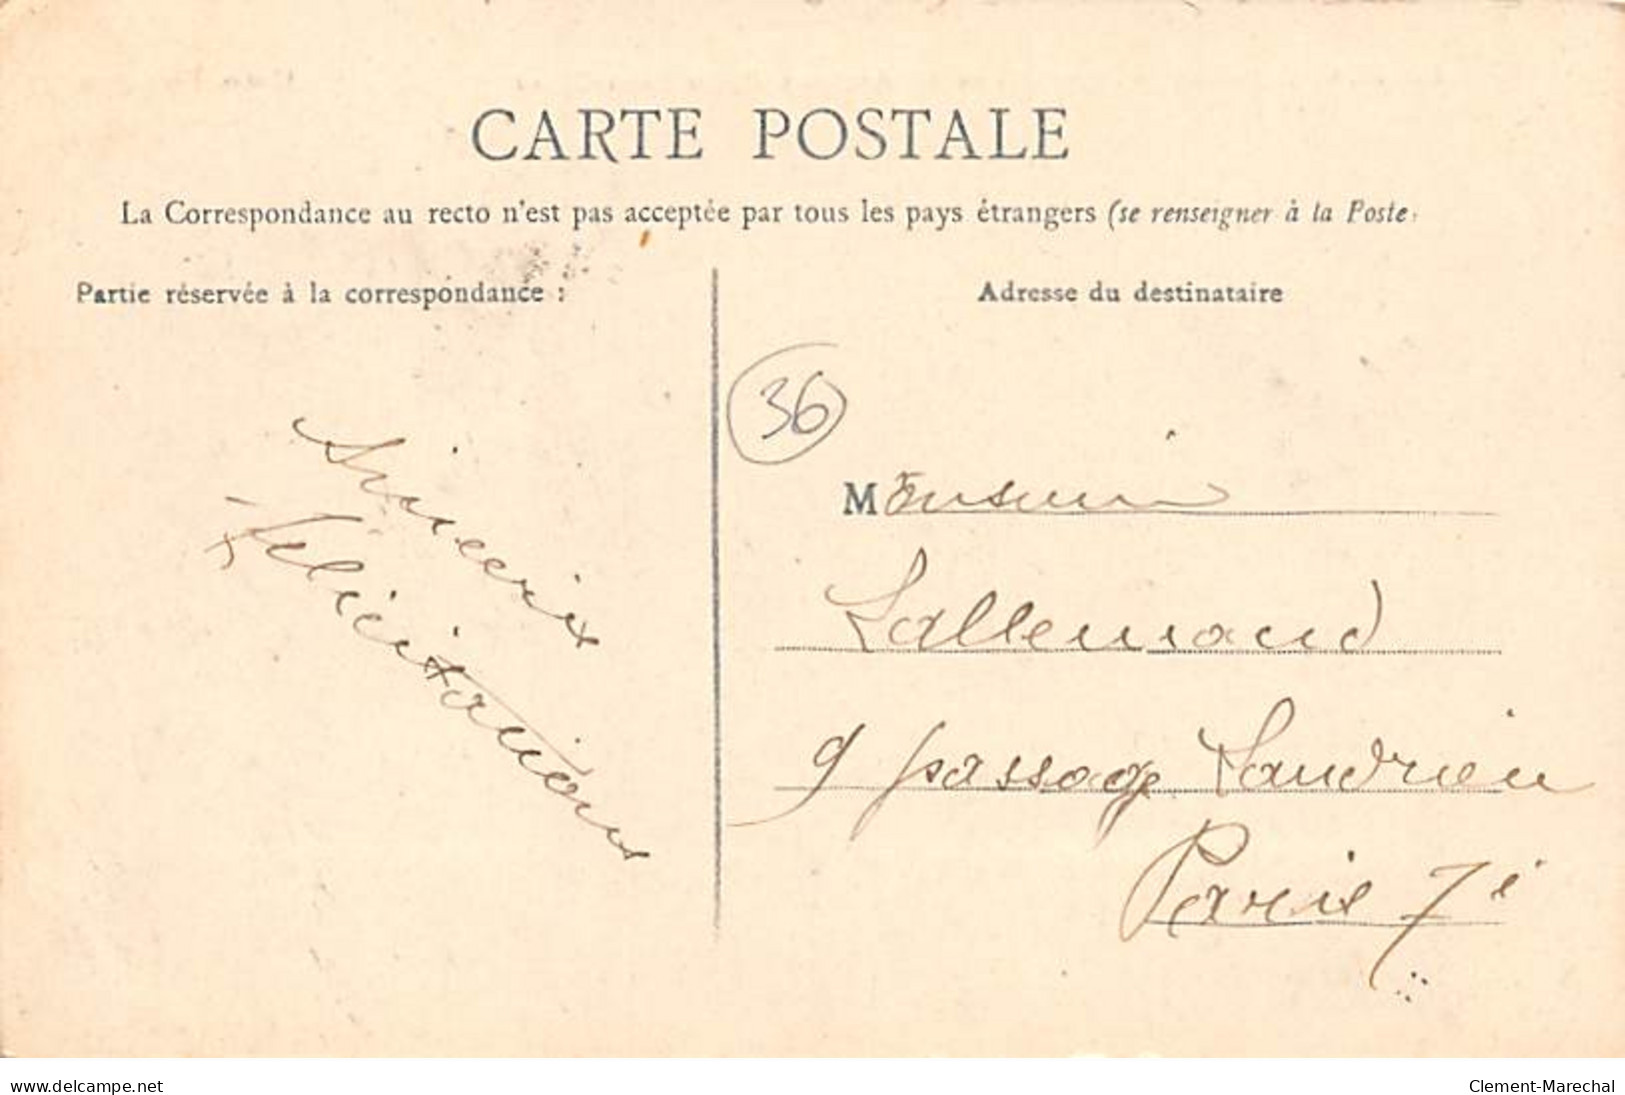 CARTE POSTALE
La Correspondance au recto n'est pas acceptée par tous les pays étrangers (se renseigner à la Poste
Partie réservée à la correspondance :
Sincerix
Félicitations
Adresse du destinataire
36
Monsieur
Lallemand
9 passage Landrieu
Paris 7e
www.delcampe.net
Clement-Marechal